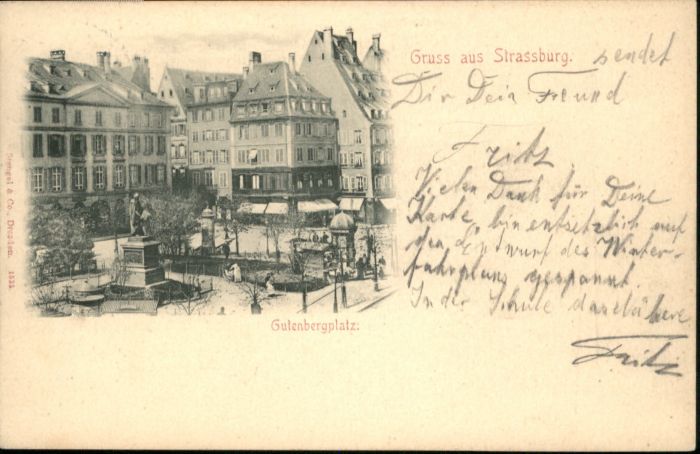 Gruss aus Strassburg. sendet
Dir Dein Freund
Fritz
Vielen Dank für Deine
Karte, bin entsetzlich auf
den Entwurf des Winter-
fahrplans gespannt.
In der Schule dasselbe
Fritz
Gutenbergplatz.
Stengel & Co., Dresden.